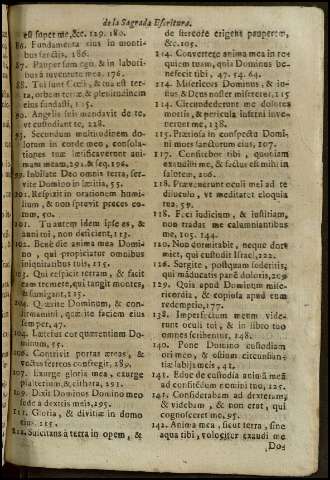 de la Sagrada Escritura.
est super me, &c. 129. 180.
86. Fundamenta eius in monti-
bus sanctis, 186.
87. Pauper sum ego, & in labori-
bus à iuventute mea, 176.
88. Tui sunt Cœli, & tua est ter-
ra, orbem terræ & plenitudinem
eius fundasti, 115.
90. Angelis suis mandavit de te,
ut custodiant te, 228.
93. Secundum multitudinem do-
lorum in corde meo, consola-
tiones tuæ lætificaverunt ani-
mam meam, 291. & seq. 196.
99. Iubilate Deo omnis terra, ser-
vite Domino in lætitia, 55.
101. Respexit in orationem humi-
lium, & non sprevit preces eo-
rum, 50.
101. Tu autem idem ipse es, &
anni tui, non deficient, 113.
102. Benedic anima mea Domi-
no, qui propitiatur omnibus
iniquitatibus tuis, 115.
103. Qui respicit terram, & facit
eam tremere, qui tangit montes,
& fumigant, 125.
104. Quærite Dominum, & con-
firmamini, quærite faciem eius
semper, 47.
104. Lætetur cor quærentium Do-
minum, 55.
106. Contrivit portas æreas, &
vectes ferreos confregit, 289.
107. Exurge gloria mea, exurge
psalterium, & cithara, 291.
109. Dixit Dominus Domino meo
sede à dextris meis, 295.
111. Gloria, & divitiæ in domo
eius, 215.
112. Suscitans à terra in opem, &
de stercore erigens pauperem,
&c. 105.
114. Convertere anima mea in re-
quiem tuam, quia Dominus be-
nefecit tibi, 47. 54. 64.
114. Misericors Dominus, & iu-
stus, & Deus noster miseretur, 115
114. Circundederunt me dolores
mortis, & pericula inferni inve-
nerunt me, 138.
115. Prætiosa in conspectu Domi-
ni mors sanctorum eius, 107.
117. Confitebor tibi, quoniam
exaudisti me, & factus est mihi in
salutem, 206.
118. Prævenerunt oculi mei ad te
diluculo, ut meditater eloquia
tua, 59.
118. Feci iudicium, & iustitiam,
non tradas me calumniantibus
me, 105. 144.
120. Non dormitabit, neque dor-
miet, qui custodit Israel, 122.
126. Surgite, postquam sederitis,
qui māducatis panē doloris, 209
129. Quia apud Dominum mise-
ricordia, & copiosa apud eum
redemptio, 177.
138. Imperfectum meum vide-
runt oculi tui, & in libro tuo
omnes scribentur, 148.
140. Pone Domino custodiam
ori meo, & ostium circunstan-
tiæ labijs meis, 41.
141. Educ de custodia animā meā
ad confitēdum nomini tuo, 125.
141. Considerabam ad dexteram,
& videbam, & non erat, qui
cognosceret me, 95.
142. Anima mea, sicut terra, sine
aqua tibi, velociter exaudi me
Do